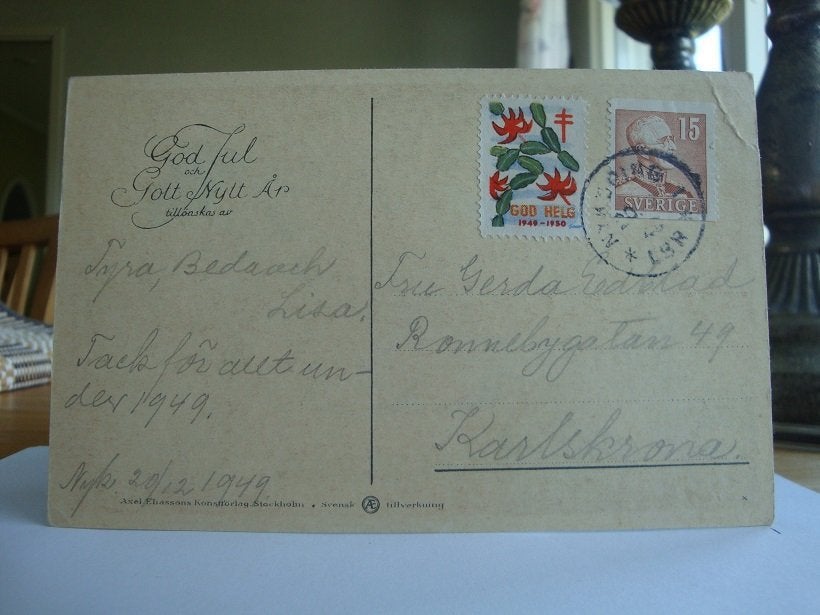 God Jul
och
Gott Nytt År
tillönskas av
Tyra, Beda och
Lisa.
Tack för allt un-
der 1949.
Nyk 20/12 1949
Axel Eliassons Konstförlag, Stockholm • Svensk Æ tillverkning
GOD HELG
1949-1950
15
SVERIGE
NYKÖPING
Fru Gerda Edstad
Ronnebygatan 49
Karlskrona.